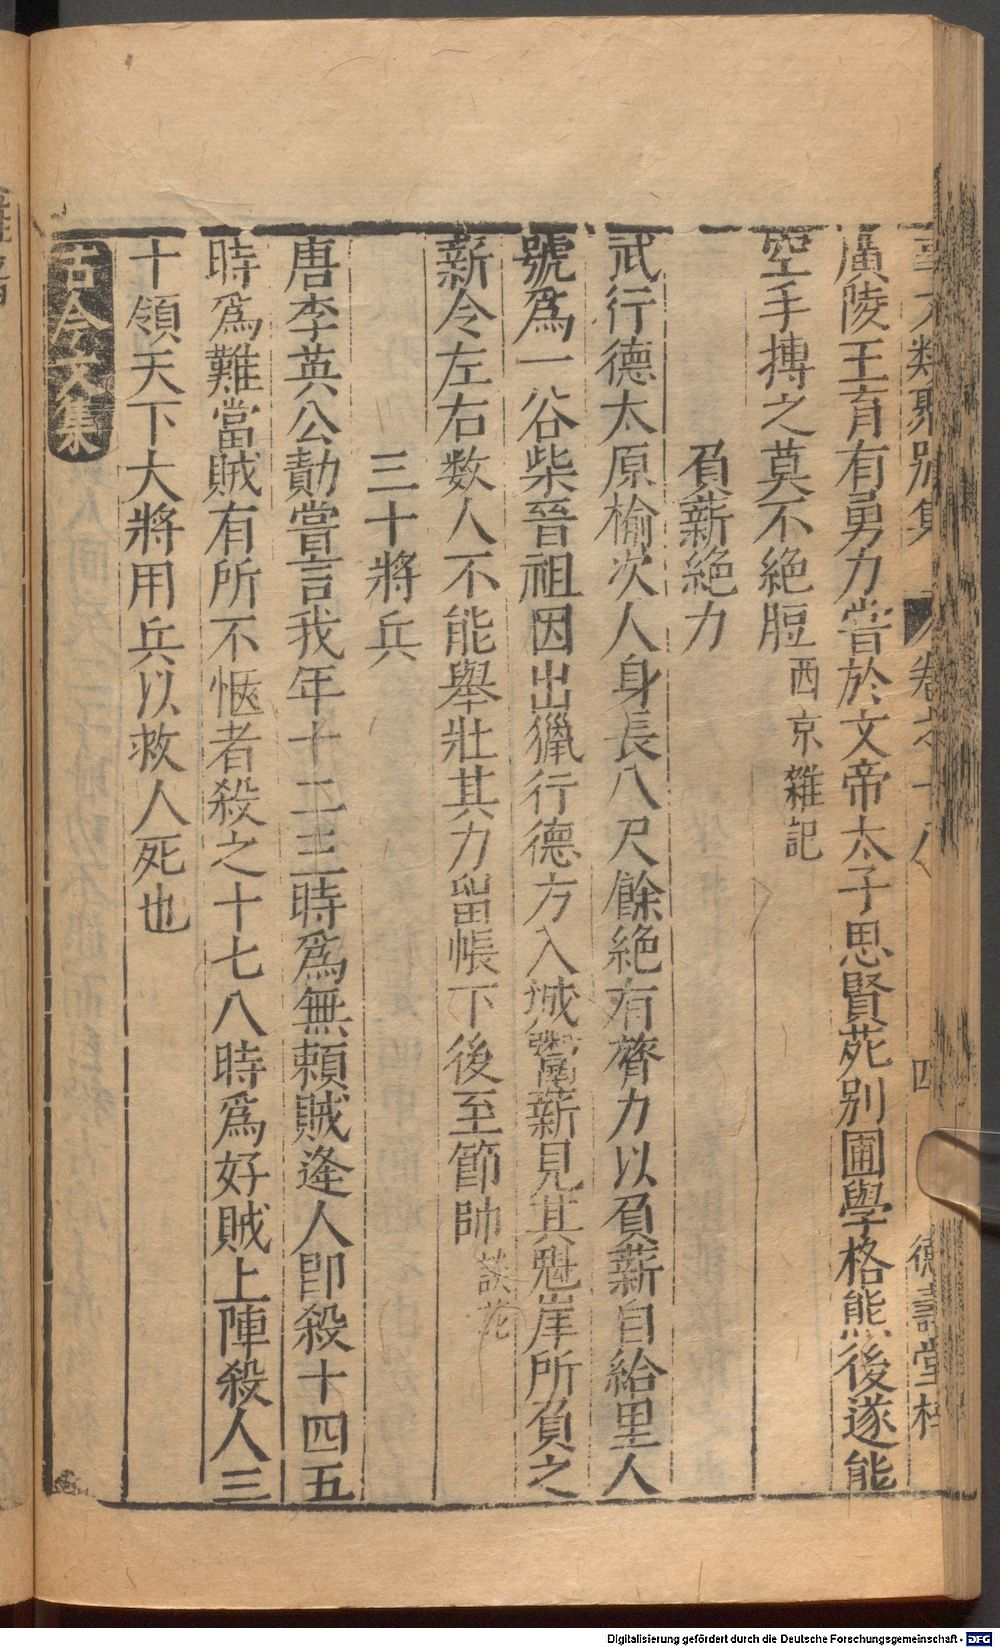 事文類聚別集 卷之十八 四 德壽堂梓
廣陵王胥有勇力嘗於文帝太子思賢苑別囿學格熊後遂能
空手搏之莫不絕脰西京雜記
負薪絕力
武行德太原榆次人身長八尺餘絕有膂力以負薪自給里人
號爲一谷柴晉祖因出獵行德方入城鬻薪見其魁岸所負之
薪令左右数人不能舉壯其力留帳下後至節帥談苑
三十將兵
唐李英公勣嘗言我年十二三時爲無頼賊逢人即殺十四五
時爲難當賊有所不愜者殺之十七八時爲好賊上陣殺人三
十領天下大將用兵以救人死也
古今文集
Digitalisierung gefördert durch die Deutsche Forschungsgemeinschaft - DFG